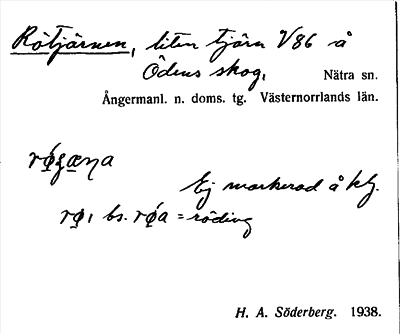 Rötjärnen, liten tjärn V86 å
Ödens skog, Nätra sn.
Ångermanl. n. doms. tg. Västernorrlands län.
Ej markerad å ktj.
bs. = röding
H. A. Söderberg. 1938.